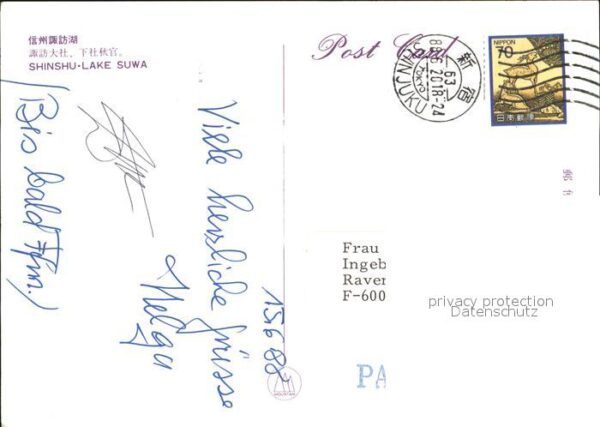 信州諏訪湖
諏訪大社、下社秋宮。
SHINSHU-LAKE SUWA
Post Card
新宿
63
88.6.20 18-24
TOKYO
SHINJUKU
NIPPON
70
日本郵便
15.6.88
Viele herzliche Grüsse
Helga
(Bis bald
Frau
Ingeb
Raver
F-600
PA
MOUNTAIN
privacy protection
Datenschutz